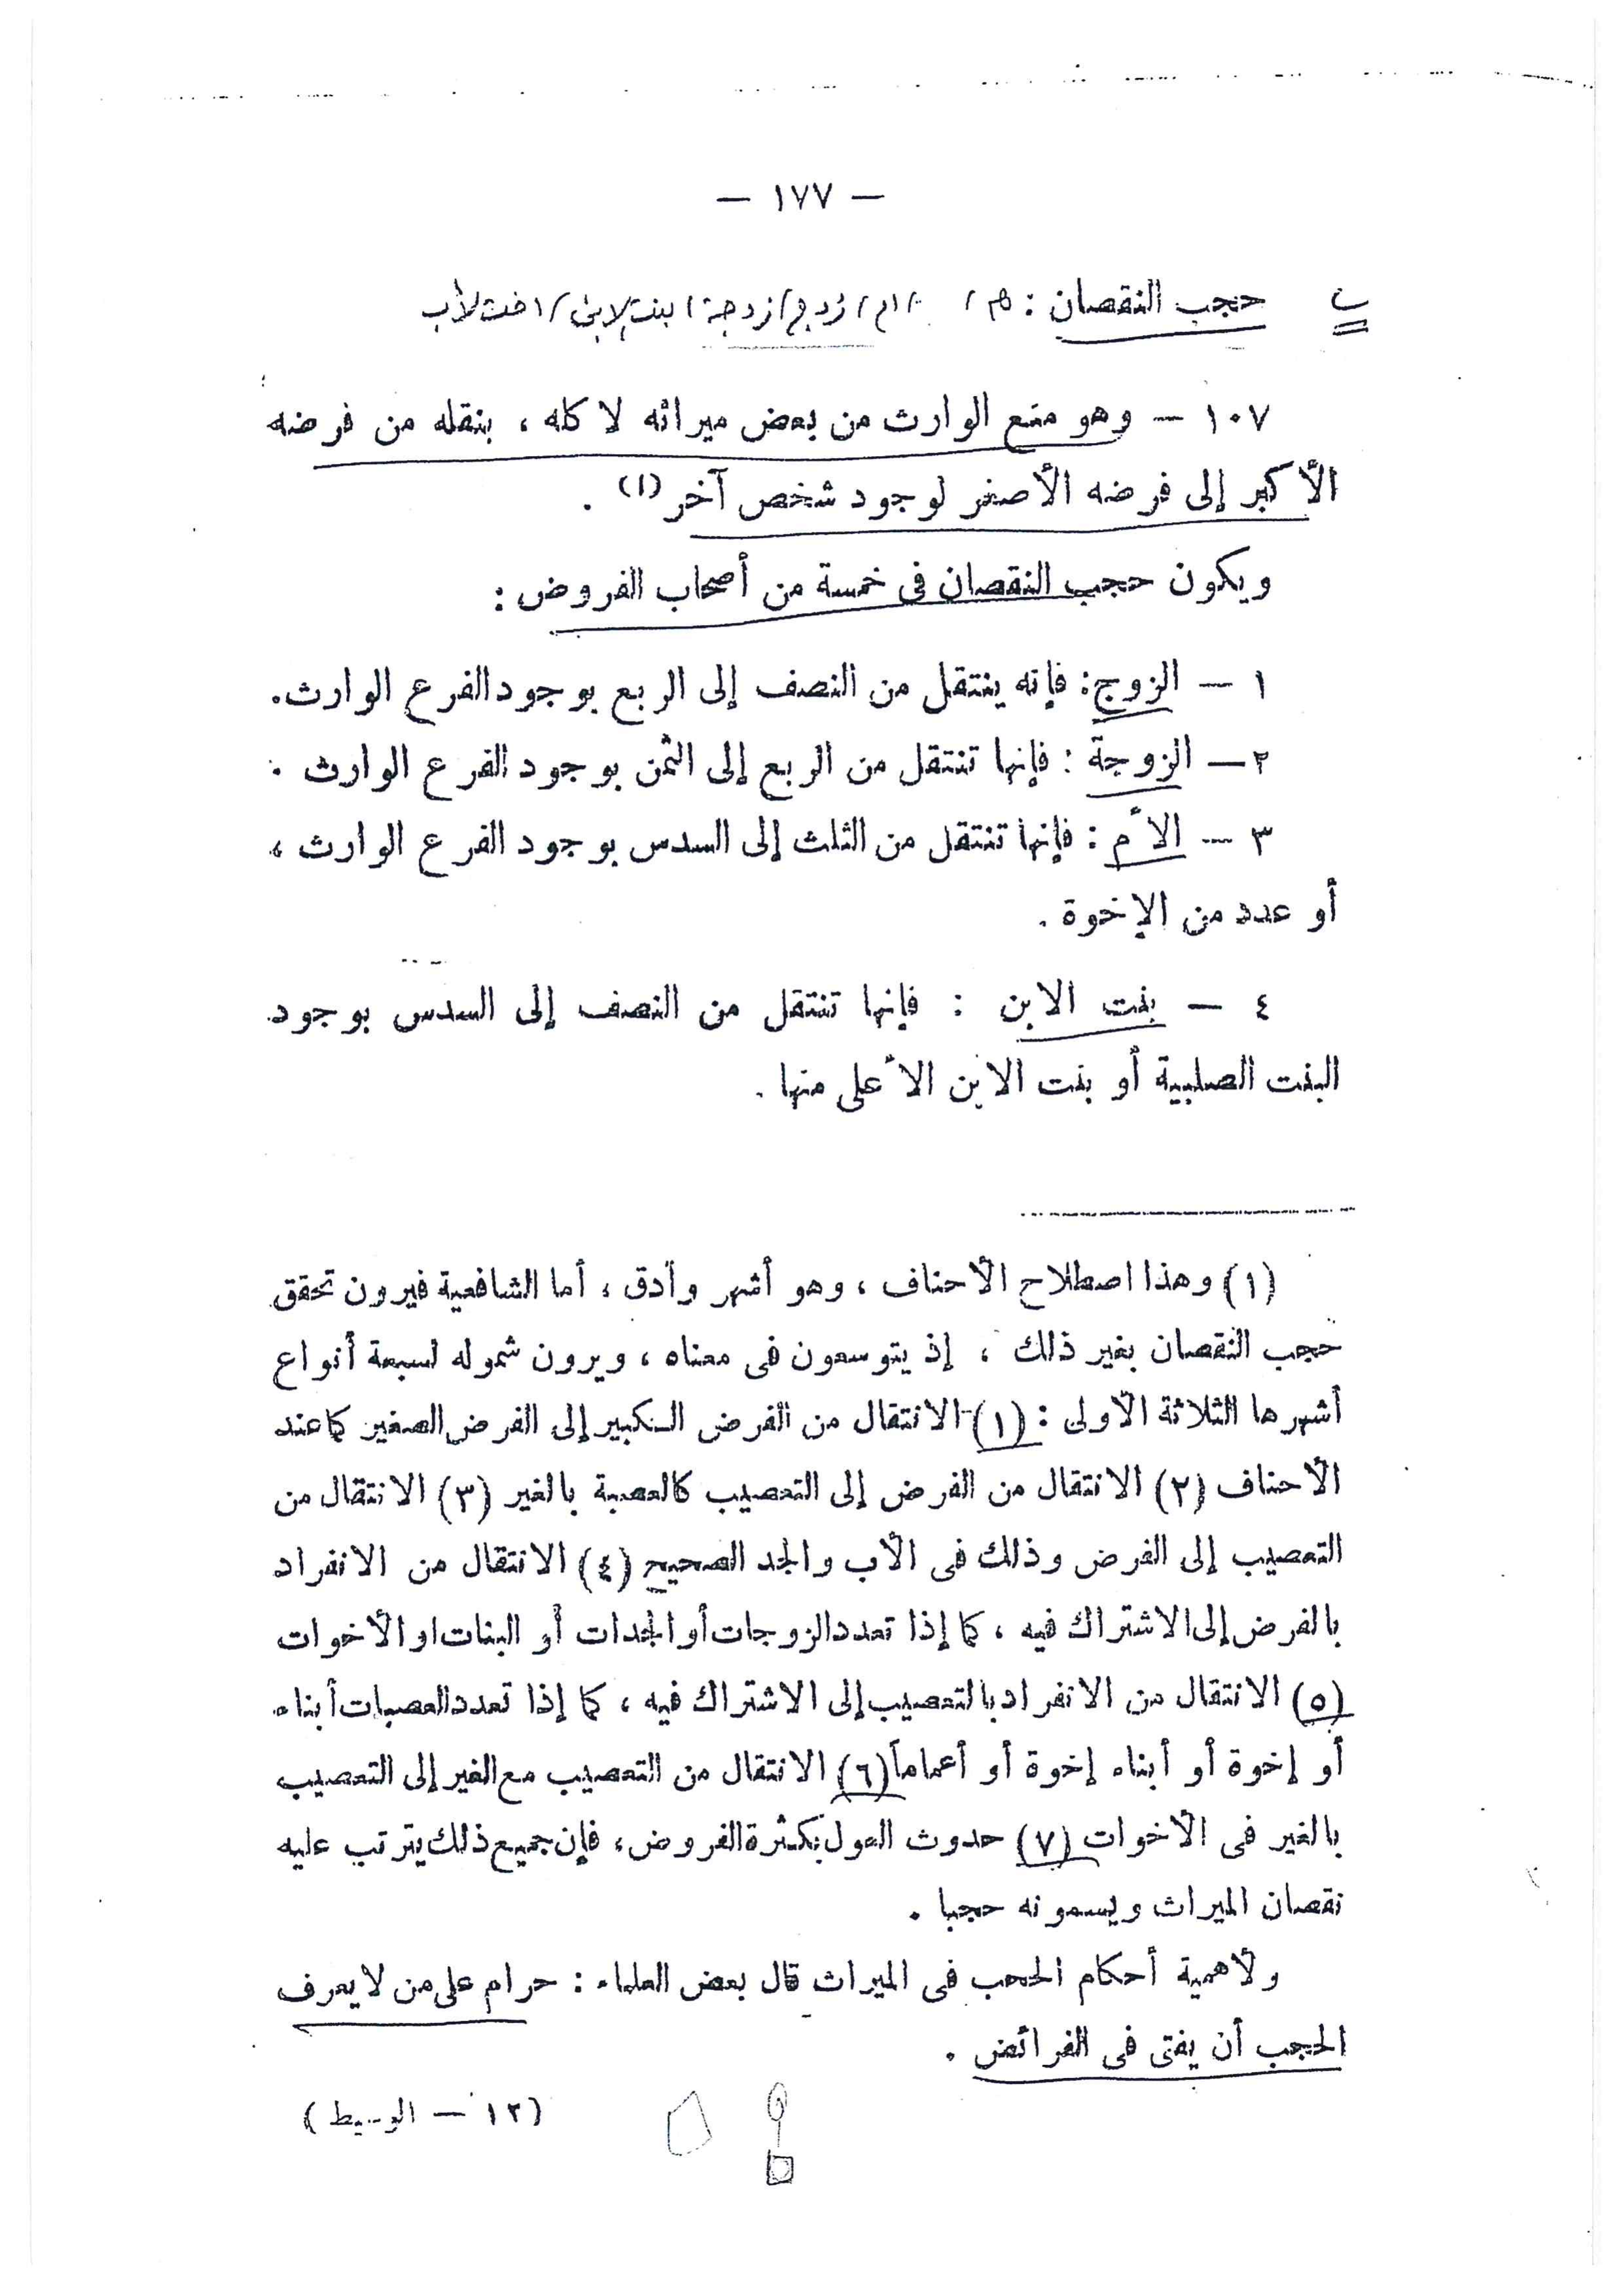 — ١٧٧ —
ب حجب النقصان : هم / ام / زوج / زوجة / بنت الابن / اخت لأب
١٠٧ — وهو منع الوارث من بعض ميراثه لا كله ، بنقله من فرضه
الأكبر إلى فرضه الأصغر لوجود شخص آخر (١) .
ويكون حجب النقصان فى خمسة من أصحاب الفروض :
١ — الزوج : فإنه ينتقل من النصف إلى الربع بوجود الفرع الوارث .
٢ — الزوجة : فإنها تنتقل من الربع إلى الثمن بوجود الفرع الوارث .
٣ — الأم : فإنها تنتقل من الثلث إلى السدس بوجود الفرع الوارث ،
أو عدد من الإخوة .
٤ — بنت الابن : فإنها تنتقل من النصف إلى السدس بوجود
البنت الصلبية أو بنت الابن الأعلى منها .
(١) وهذا اصطلاح الأحناف ، وهو أشهر وأدق ، أما الشافعية فيرون تحقق
حجب النقصان بغير ذلك ، إذ يتوسعون فى معناه ، ويرون شموله لسبعة أنواع
أشهرها الثلاثة الأولى : (١) الانتقال من الفرض الكبير إلى الفرض الصغير كما عند
الأحناف (٢) الانتقال من الفرض إلى التعصيب كالعصبة بالغير (٣) الانتقال من
التعصيب إلى الفرض وذلك فى الأب والجد الصحيح (٤) الانتقال من الانفراد
بالفرض إلى الاشتراك فيه ، كما إذا تعدد الزوجات أو الجدات أو البنات او الأخوات
(٥) الانتقال من الانفراد بالتعصيب إلى الاشتراك فيه ، كما إذا تعدد العصبات أبناء
أو إخوة أو أبناء إخوة أو أعماماً (٦) الانتقال من التعصيب مع الغير إلى التعصيب
بالغير فى الأخوات (٧) حدوث العول بكثرة الفروض ، فإن جميع ذلك يترتب عليه
نقصان الميراث ويسمونه حجبا .
ولأهمية أحكام الحجب فى الميراث قال بعض العلماء : حرام على من لا يعرف
الحجب أن يفتى فى الفرائض .
(١٢ — الوسيط)